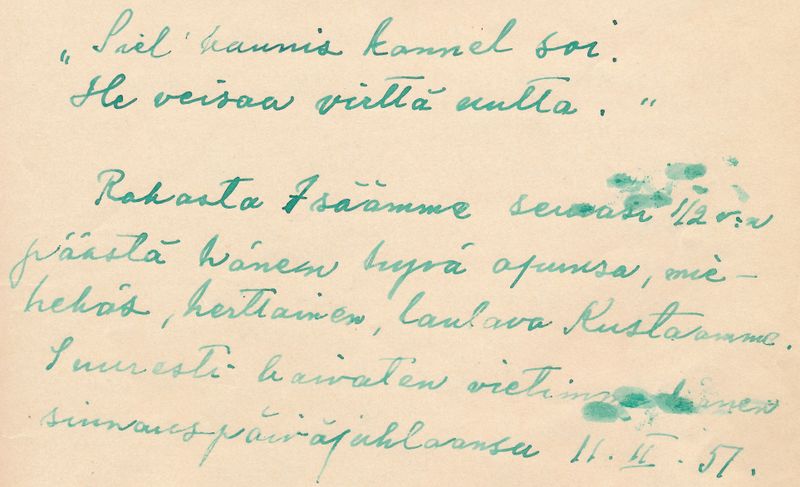 „Siel' kaunis kannel soi.
He veisaa virttä uutta."
Rakasta Isäämme seurasi 1/2 v:n
päästä hänen hyvä apunsa, mie-
hekäs, herttainen, laulava Kustaamme.
Suuresti kaivaten vietimme hänen
siunauspäiväjuhlaansa 11. II. 51.